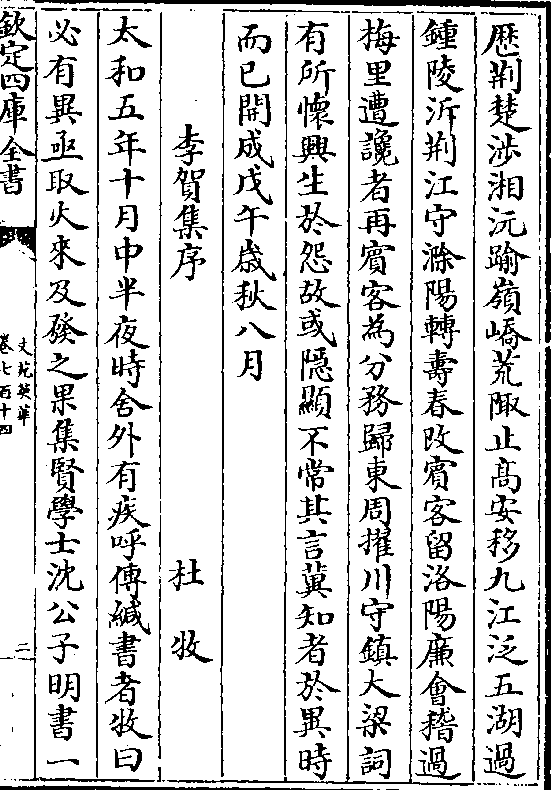 歴荆楚涉湘沅踰嶺嶠荒陬止髙安移九江泛五湖過
鍾陵泝荆江守滁陽轉夀春改賔客留洛陽亷會稽過
梅里遭讒者再賔客為分務歸東周擢川守鎮大梁詞
有所懷興生於怨故或隠顯不常其言冀知者於異時
而已開成戊午歳秋八月
李賀集序　杜牧
太和五年十月中半夜時舍外有疾呼傳緘書者牧曰
必有異亟取火來及發之果集賢學士沈公子明書一
欽定四庫全書
文苑英華
卷七百十四
三